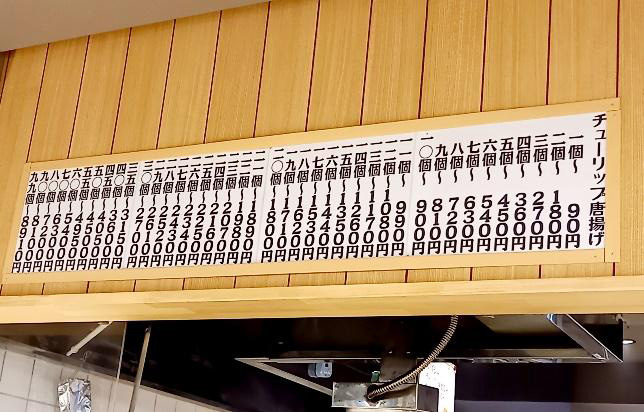 チューリップ唐揚げ
一個〜90円
二個〜180円
三個〜270円
四個〜360円
五個〜450円
六個〜540円
七個〜630円
八個〜720円
九個〜810円
一〇個〜900円
一一個〜990円
一二個〜1080円
一三個〜1170円
一四個〜1260円
一五個〜1350円
一六個〜1440円
一七個〜1530円
一八個〜1620円
一九個〜1710円
二〇個〜1800円
二一個〜1890円
二二個〜1980円
二三個〜2070円
二四個〜2160円
二五個〜2250円
二六個〜2340円
二七個〜2430円
二八個〜2520円
二九個〜2610円
三〇個〜2700円
三五個〜3150円
四〇個〜3600円
四五個〜4050円
五〇個〜4500円
五五個〜4950円
六〇個〜5400円
七〇個〜6300円
八〇個〜7200円
九〇個〜8100円
九九個〜8910円